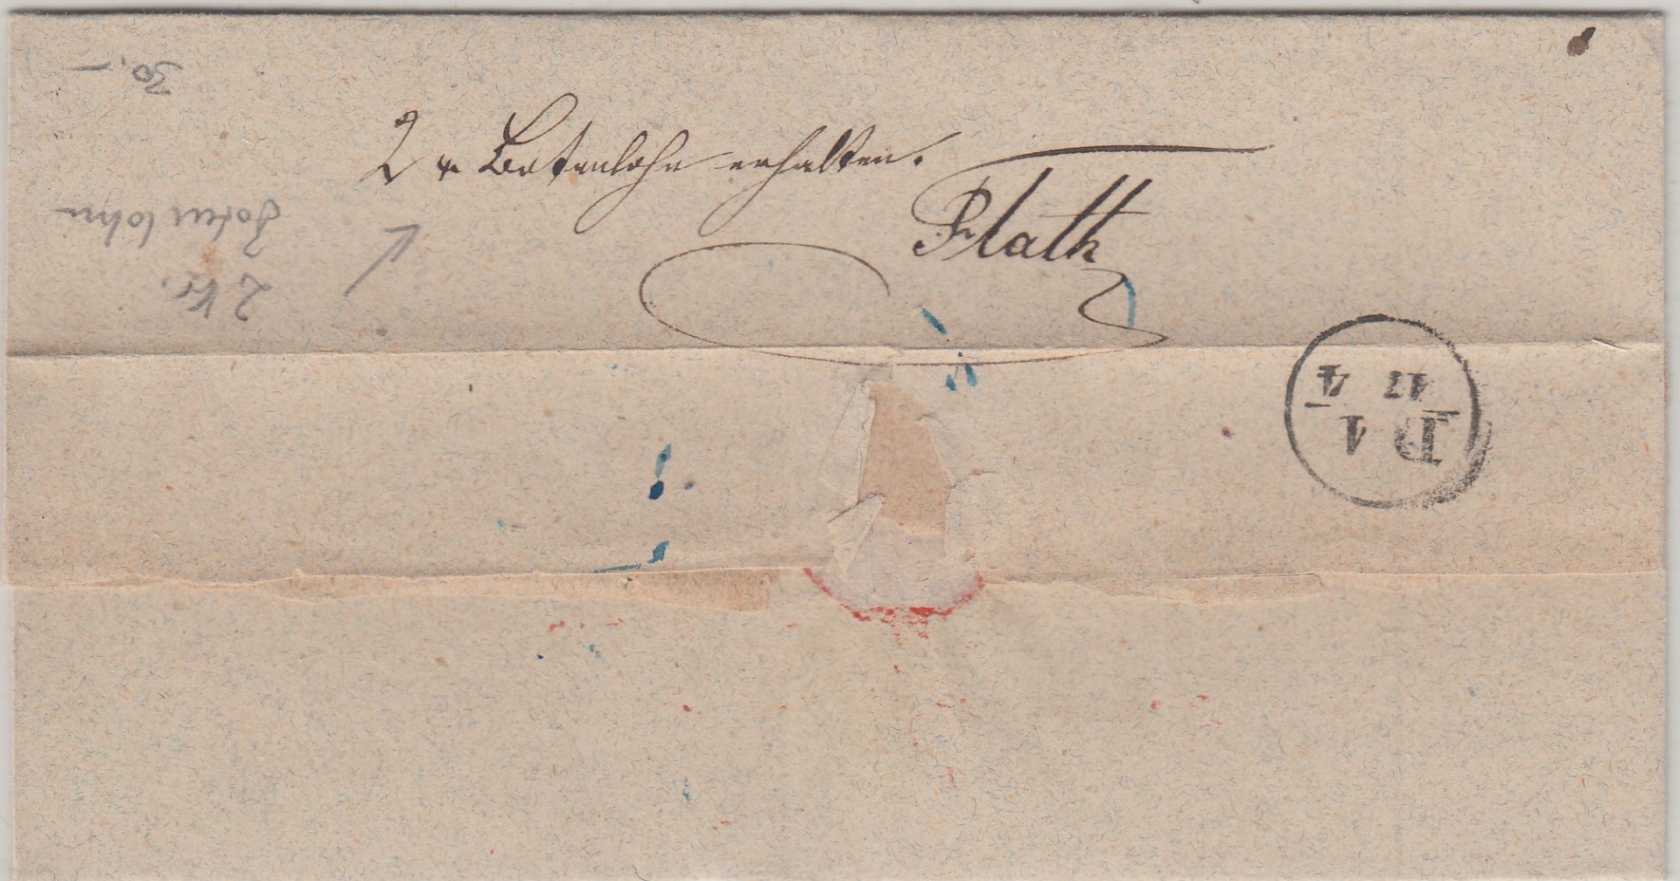 30,-
2 x Botenlohn erhalten.
Flath
2 Kr.
Botenlohn
B 1
17 4